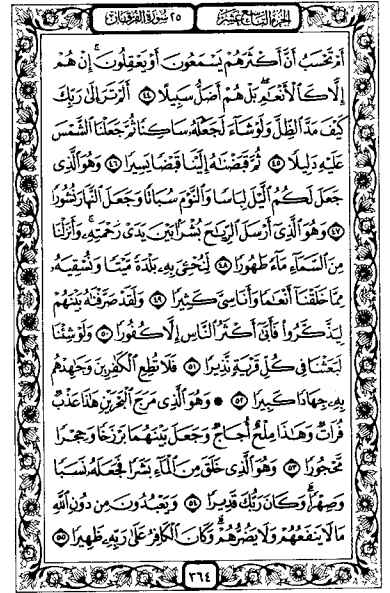 الجزء التاسع عشر
٢٥ سورة الفرقان
أَمْ تَحْسَبُ أَنَّ أَكْثَرَهُمْ يَسْمَعُونَ أَوْ يَعْقِلُونَ ۚ إِنْ هُمْ
إِلَّا كَالْأَنْعَامِ ۖ بَلْ هُمْ أَضَلُّ سَبِيلًا ٤٤ أَلَمْ تَرَ إِلَىٰ رَبِّكَ
كَيْفَ مَدَّ الظِّلَّ وَلَوْ شَاءَ لَجَعَلَهُ سَاكِنًا ثُمَّ جَعَلْنَا الشَّمْسَ
عَلَيْهِ دَلِيلًا ٤٥ ثُمَّ قَبَضْنَاهُ إِلَيْنَا قَبْضًا يَسِيرًا ٤٦ وَهُوَ الَّذِي
جَعَلَ لَكُمُ اللَّيْلَ لِبَاسًا وَالنَّوْمَ سُبَاتًا وَجَعَلَ النَّهَارَ نُشُورًا
٤٧ وَهُوَ الَّذِي أَرْسَلَ الرِّيَاحَ بُشْرًا بَيْنَ يَدَيْ رَحْمَتِهِ ۚ وَأَنْزَلْنَا
مِنَ السَّمَاءِ مَاءً طَهُورًا ٤٨ لِنُحْيِيَ بِهِ بَلْدَةً مَيْتًا وَنُسْقِيَهُ
مِمَّا خَلَقْنَا أَنْعَامًا وَأَنَاسِيَّ كَثِيرًا ٤٩ وَلَقَدْ صَرَّفْنَاهُ بَيْنَهُمْ
لِيَذَّكَّرُوا فَأَبَىٰ أَكْثَرُ النَّاسِ إِلَّا كُفُورًا ٥٠ وَلَوْ شِئْنَا
لَبَعَثْنَا فِي كُلِّ قَرْيَةٍ نَذِيرًا ٥١ فَلَا تُطِعِ الْكَافِرِينَ وَجَاهِدْهُمْ
بِهِ جِهَادًا كَبِيرًا ٥٢ وَهُوَ الَّذِي مَرَجَ الْبَحْرَيْنِ هَٰذَا عَذْبٌ
فُرَاتٌ وَهَٰذَا مِلْحٌ أُجَاجٌ وَجَعَلَ بَيْنَهُمَا بَرْزَخًا وَحِجْرًا
مَحْجُورًا ٥٣ وَهُوَ الَّذِي خَلَقَ مِنَ الْمَاءِ بَشَرًا فَجَعَلَهُ نَسَبًا
وَصِهْرًا ۗ وَكَانَ رَبُّكَ قَدِيرًا ٥٤ وَيَعْبُدُونَ مِنْ دُونِ اللَّهِ
مَا لَا يَنْفَعُهُمْ وَلَا يَضُرُّهُمْ ۗ وَكَانَ الْكَافِرُ عَلَىٰ رَبِّهِ ظَهِيرًا ٥٥
٣٦٤